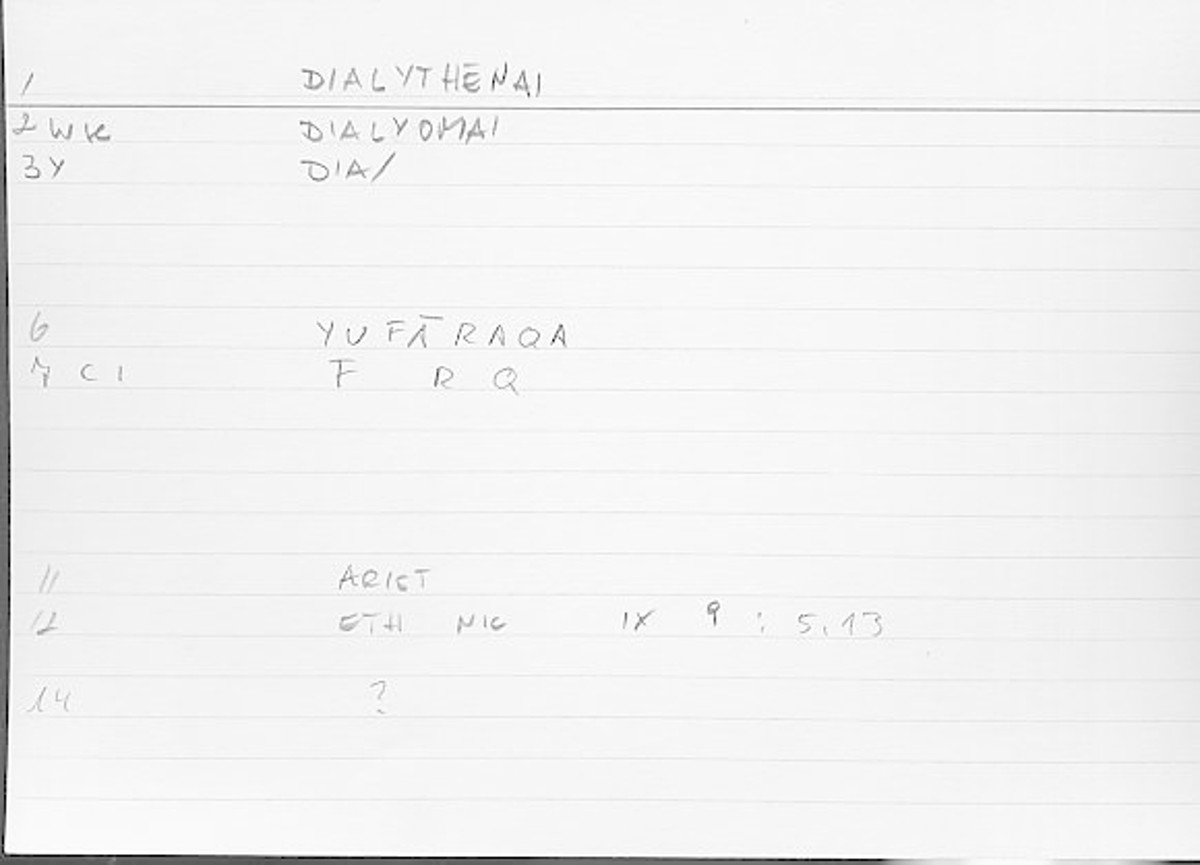 1 DIALYTHĒNAI
2 WK DIALYOMAI
3 Y DIA/
6 YUFĀRAQA
7 C 1 F R Q
11 ARIST
12 ETH NIC IX 9 : 5.13
14 ?